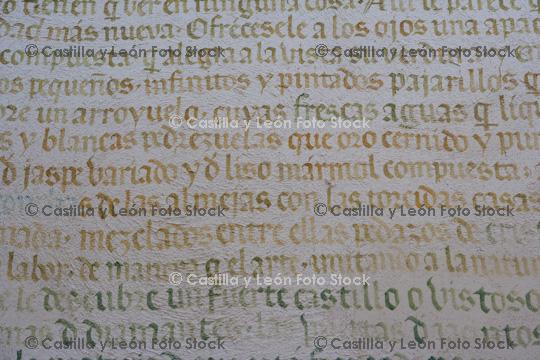 tienen q̃ ver en ninguna cosa· A
dad más nueva· Ofrécesele a los ojos una apa
compuesta· q̃ alegra a la vista
os pequeños· infinitos y pintados pajarillos q
bre un arroyuelo, cuyas frescas aguas q̃ liq
s y blancas pedrezuelas que oro cernido y pu
d jaspe variado y d liso mármol compuesta·
s de las almejas con las torcidas casas
nada· mezclados entre ellas pedazos de cr
labor· de manera q el arte· imitando a la natu
le descubre un fuerte castillo o vistoso
d diamantes· las d jacintos
© Castilla y León Foto Stock
© Castilla y León Foto Stock
© Castilla y León Foto Stock
© Castilla y León Foto Stock
© Castilla y León Foto Stock
© Castilla y León Foto Stock
© Castilla y León Foto Stock
© Castilla y León Foto Stock